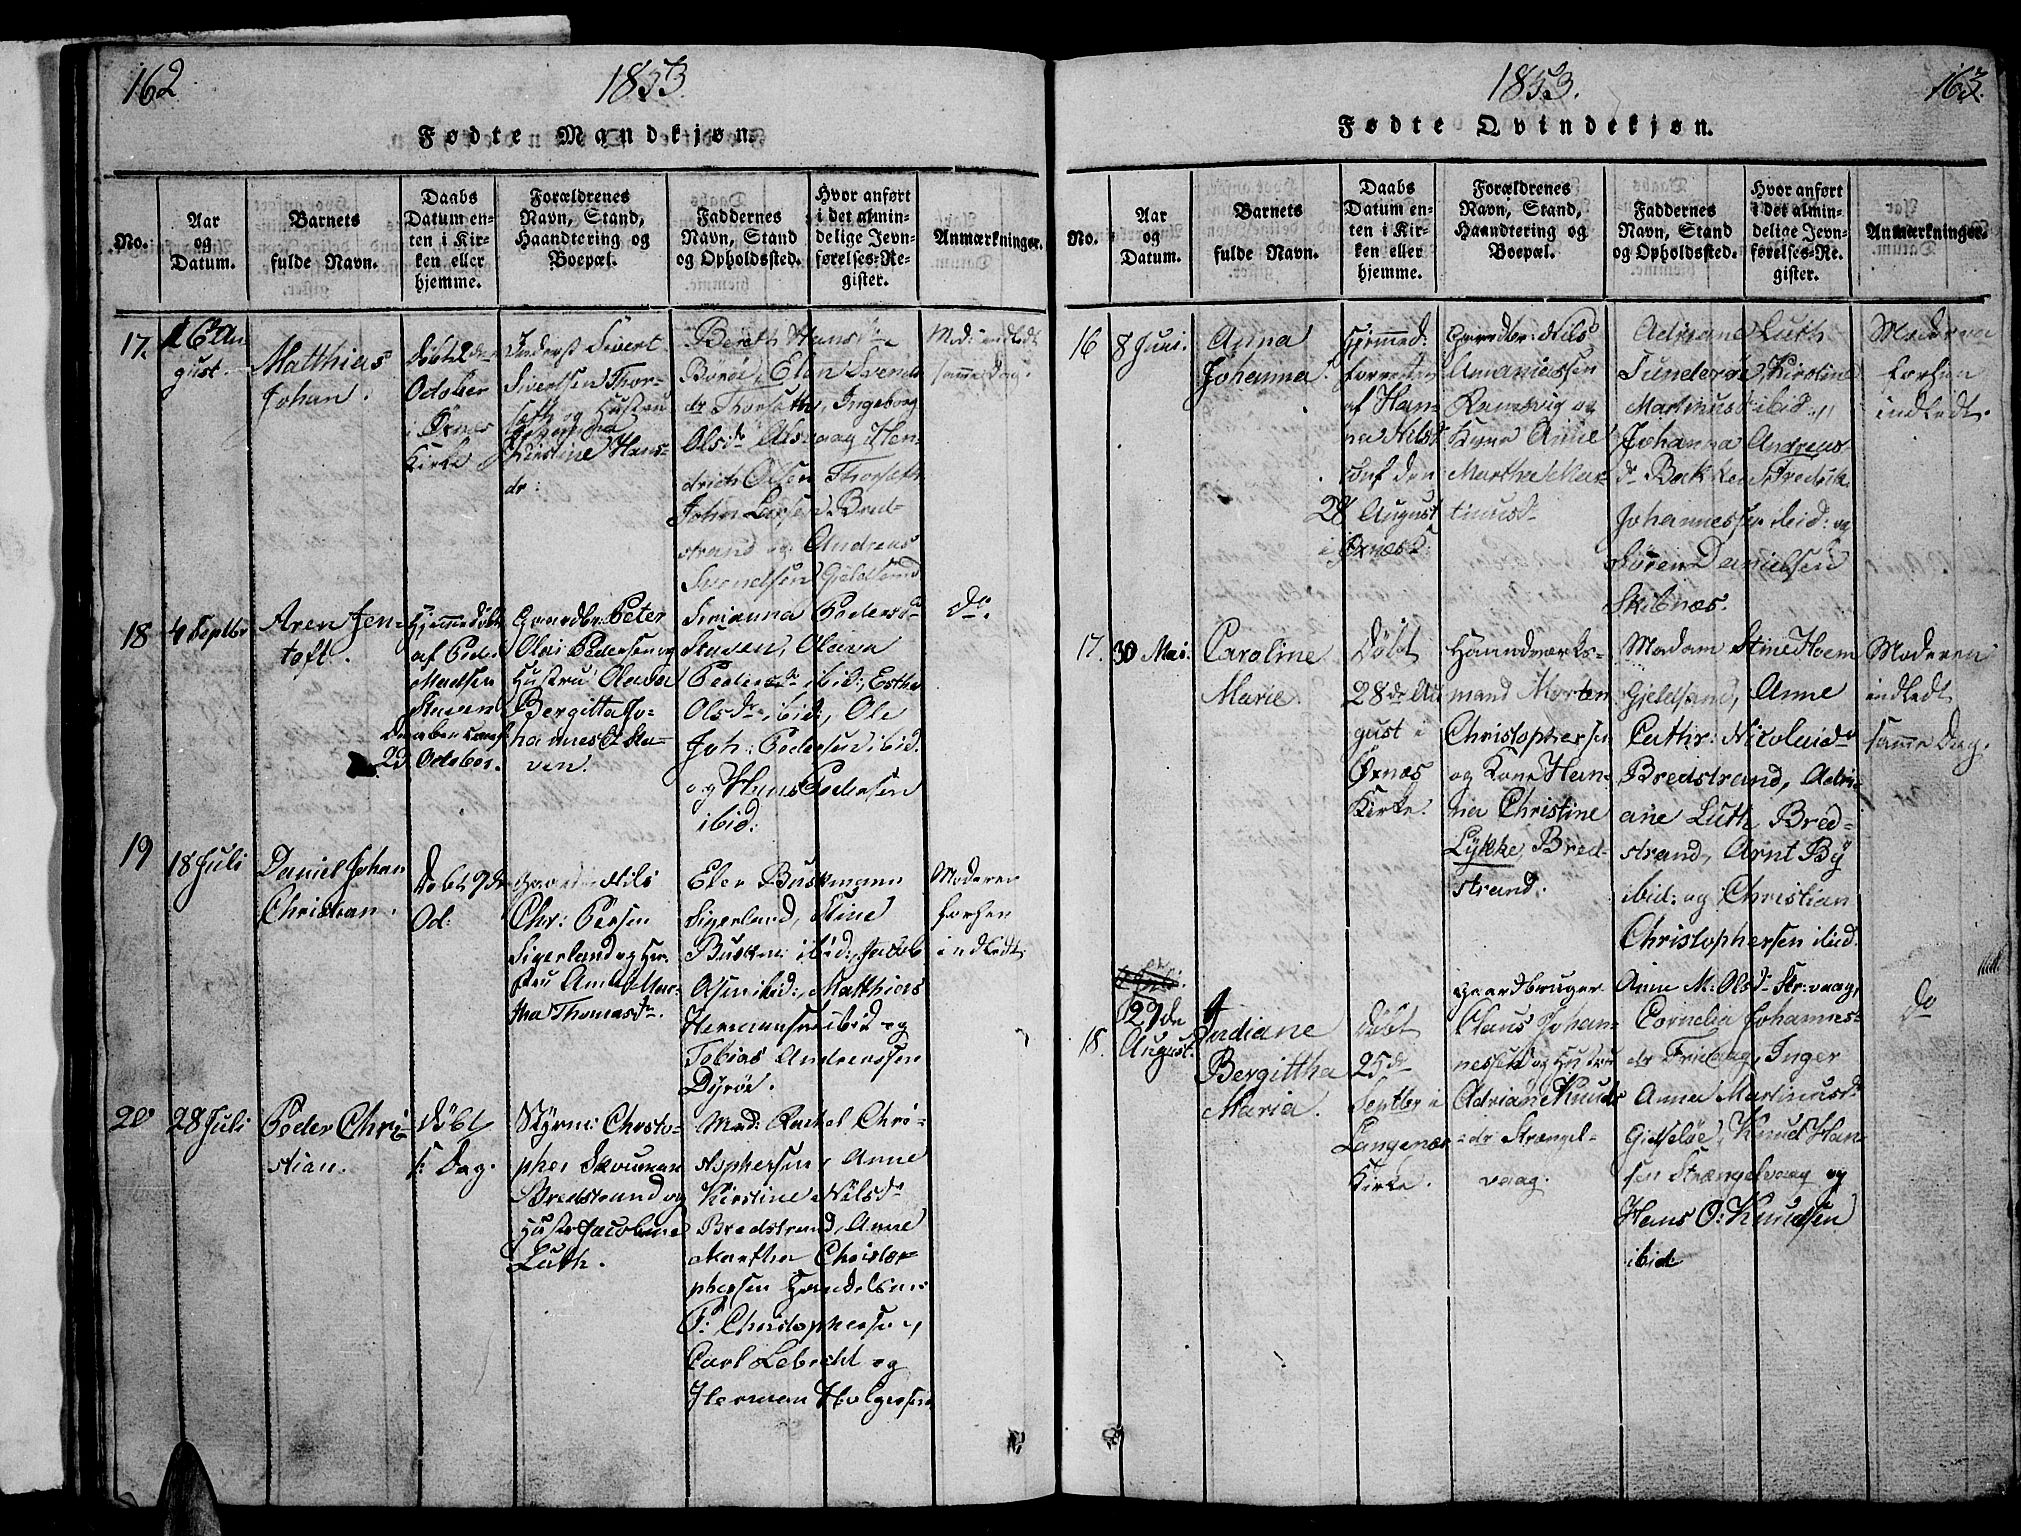 162
1853
Fødte Mandkjøn.
No.
Aar
og
Datum.
Barnets
fulde Navn.
Daabs
Datum en-
ten i Kir-
ken eller
hjemme.
Forældrenes
Navn, Stand,
Haandtering og
Boepæl.
Faddernes
Navn, Stand
og Opholdssted.
Hvor anført
i det almin-
delige Jevn-
førelses-Re-
gister.
Anmærkninger.
17.
16 Au
gust.
Matthias
Johan.
Döbt 2den
October
i Øxnes
Kirke
Inderst Sivert
Sivertsen Thor-
seth og Hustru
Kirstine Hans-
dr:
Bereth Hansdr
Boröe, Elen Svends
dr Thorseth, Ingeborg
Olsdr Alsvaag Hen-
drich Olsen Thorseth
John Larsen Bred-
strand og Andreas
Svendsen Gjeldsand
Mod: indledt
samme Dag.
18
4 Septbr
Aren Jen-
toft.
Hjemmedöbt
af Peder
Madsen
Staven
23 October.
Gaardbr. Peter
Olai Pedersen og
Hustru Olava
Bergitta Jo-
hannesd Sta-
ven.
Simanna Pedersdr
Staven, Olava
Pedersdr ibid:, Esther
Olsdr ibid:, Ole
Joh: Pedersen ibid.
og Hans Pedersen
ibid:
do.
19
18 Juli
Daniel Johan
Christian.
Döbt 9de
Oct:
Gaardm Nils
Chr: Persen
Sigerland og Hu-
stru Anne Mar-
tha Thomasdr.
Elen Buskmann
Sigerland, Stine
Buskm: ibid:, Jacob
Olsen ibid:, Matthias
Hermansen ibid og
Tobias Andreassen
Dyröe.
Moderen
forhen
indledt
20
28 Juli
Peder Chri-
stian.
Döbt
s: Dag.
Styrm: Christo-
pher Skouman
Bredstrand og
Hustr Jacobine
Luth.
Mad: Rachel Chri-
stophersen, Anne
Kirstine Nilsdr
Bredstrand, Anne
Martha Christo-
phersen Handelsm:
P: Christophersen,
Carl Lebrecht og
Herman Holgersen
1853.
163.
Fødte Qvindekjøn.
No.
Aar
og
Datum.
Barnets
fulde Navn.
Daabs
Datum en-
ten i Kir-
ken eller
hjemme.
Forældrenes
Navn, Stand,
Haandtering og
Boepæl.
Faddernes
Navn, Stand
og Opholdssted.
Hvor anført
i det almin-
delige Jevn-
førelses-Re-
gister.
Anmærkninger.
16
8 Juni.
Anna
Johanna.
Hjemmed:
forretten
af Han-
na Nilsd
conf den
28 August
i Øxnes K:
Gaardbr: Nils
Ananiassen
Ramsvig og
Kone Anne
Martha Mar-
tinusd
Adriane Luth
Sunderöe, Kiroline
Martinusd ibid:,
Johanna Andreas-
dr Bakken, Fredrik
Johannessen ibid: og
Sören Danielsen
Skibnæs.
Moderen
forhen
indledt.
17.
30 Mai.
Caroline
Marie.
Döbt
28de Au
gust i
Øxnæs
Kirke.
Haandværks-
mand Morten
Christophersen
og Kone Han-
na Christine
Lykke, Bred-
strand.
Madam Stine Hoem
Gjeldsand, Anne
Cathr: Nicolaidr
Bredstrand, Adri-
ane Luth Bred-
strand, Arnt By
ibid: og Christian
Christophersen ibid.
Moderen
indledt
samme Dag.
18.
29de
August.
Indiane
Bergittha
Maria.
Döbt
25de
Septbr i
Langenæs
Kirke.
Gaardbruger
Claus Johan-
nessen og Hustru
Adriane Knuds
dr Strængel-
vaag.
Anne M: Olsd: Str:vaag,
Cornelia Johannes-
dr Frivaag, Inger
Anna Martinusdr
Gidslöe, Knud Han-
sen Strængelvaag og
Hans O: Knudsen
ibid
do